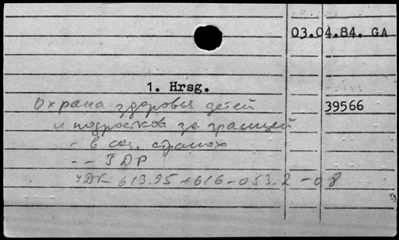 03.04.84. GA
1. Hrsg.
Охрана здоровья детей 39566
и подростков за границей
- в соц. странах
-- ГДР
УДК 613.95+616-053.2-08